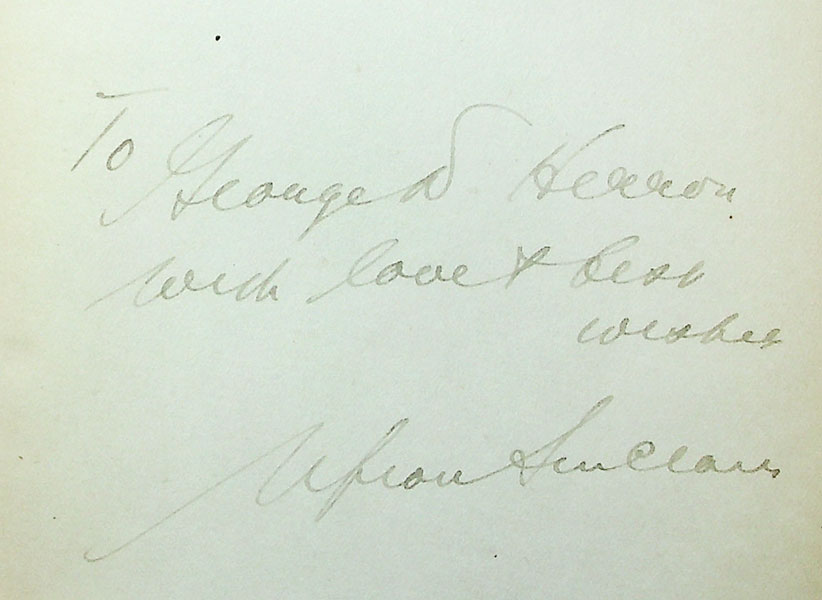 To George D Herron
with love & best
wishes
Upton Sinclair